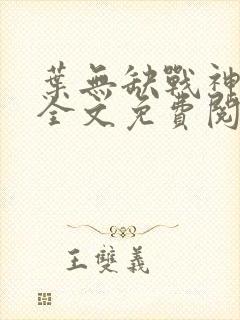 葉無缺戰神
全文免費閱
王雙義